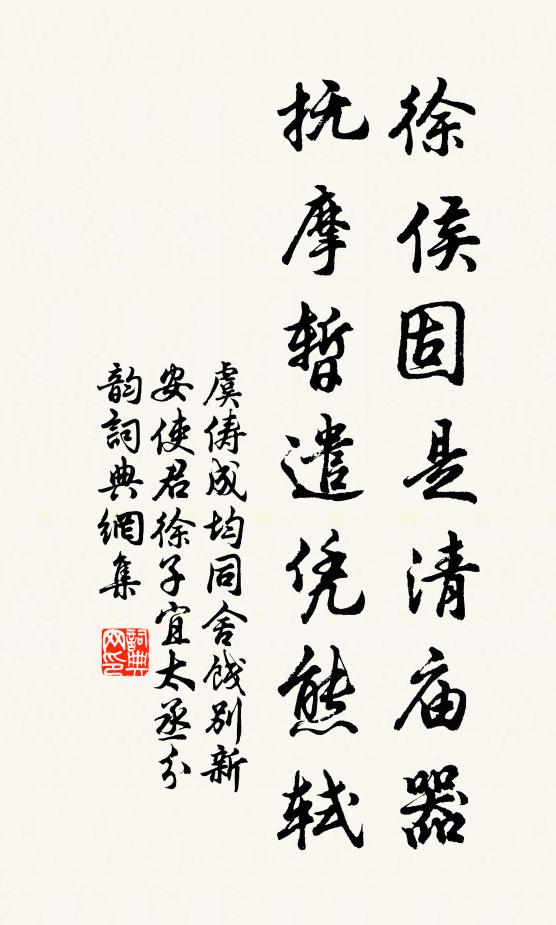 徐侯固是清庙器
抚摩暂遣凭熊轼
虞俦成均同舍饯别新
安使君徐子宜太丞分
韵词典网集
詞典网印